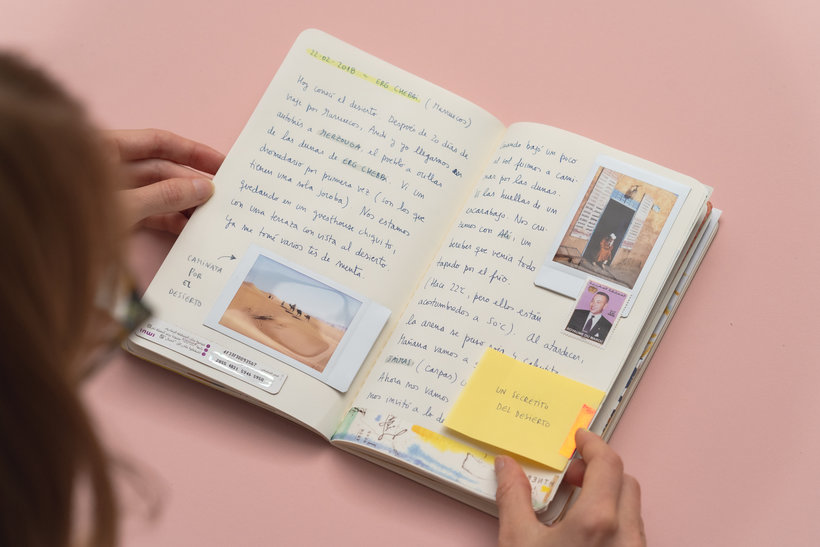 22-02-2018 - ERG CHEBBI (Marruecos)
Hoy conocí el desierto. Después de 20 días de
viaje por Marruecos, Andy y yo llegamos en
autobús a MERZOUGA, el pueblo a orillas
de las dunas de ERG CHEBBI. Vi un
dromedario por primera vez (son los que
tienen una sola joroba) Nos estamos
quedando en un guesthouse chiquito,
con una terraza con vista al desierto.
Ya me tomé varios tés de menta.
CAMINATA
POR
EL
DESIERTO
inwi
Cuando bajó un poco
el sol fuimos a cami-
nar por las dunas.
las huellas de un
escarabajo. Nos cru-
zamos con Alí, un
bereber que venía todo
tapado por el frío.
(Hace 22°C, pero ellos están
acostumbrados a 50°C). Al atardecer,
la arena se puso
Mañana vamos a
(carpas)
Ahora nos vamos
nos invitó a lo de
ROYAUME DU MAROC
UN SECRETITO
DEL DESIERTO